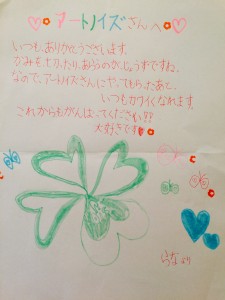 アートノイズさんへ
いつもありがとうございます。
かみを切ったり、あらうのがじょうずですね。
なので、アートノイズさんにやってもらったあと、
いつもカワイくなれます。
これからもがんばってください!!
大好きです
より